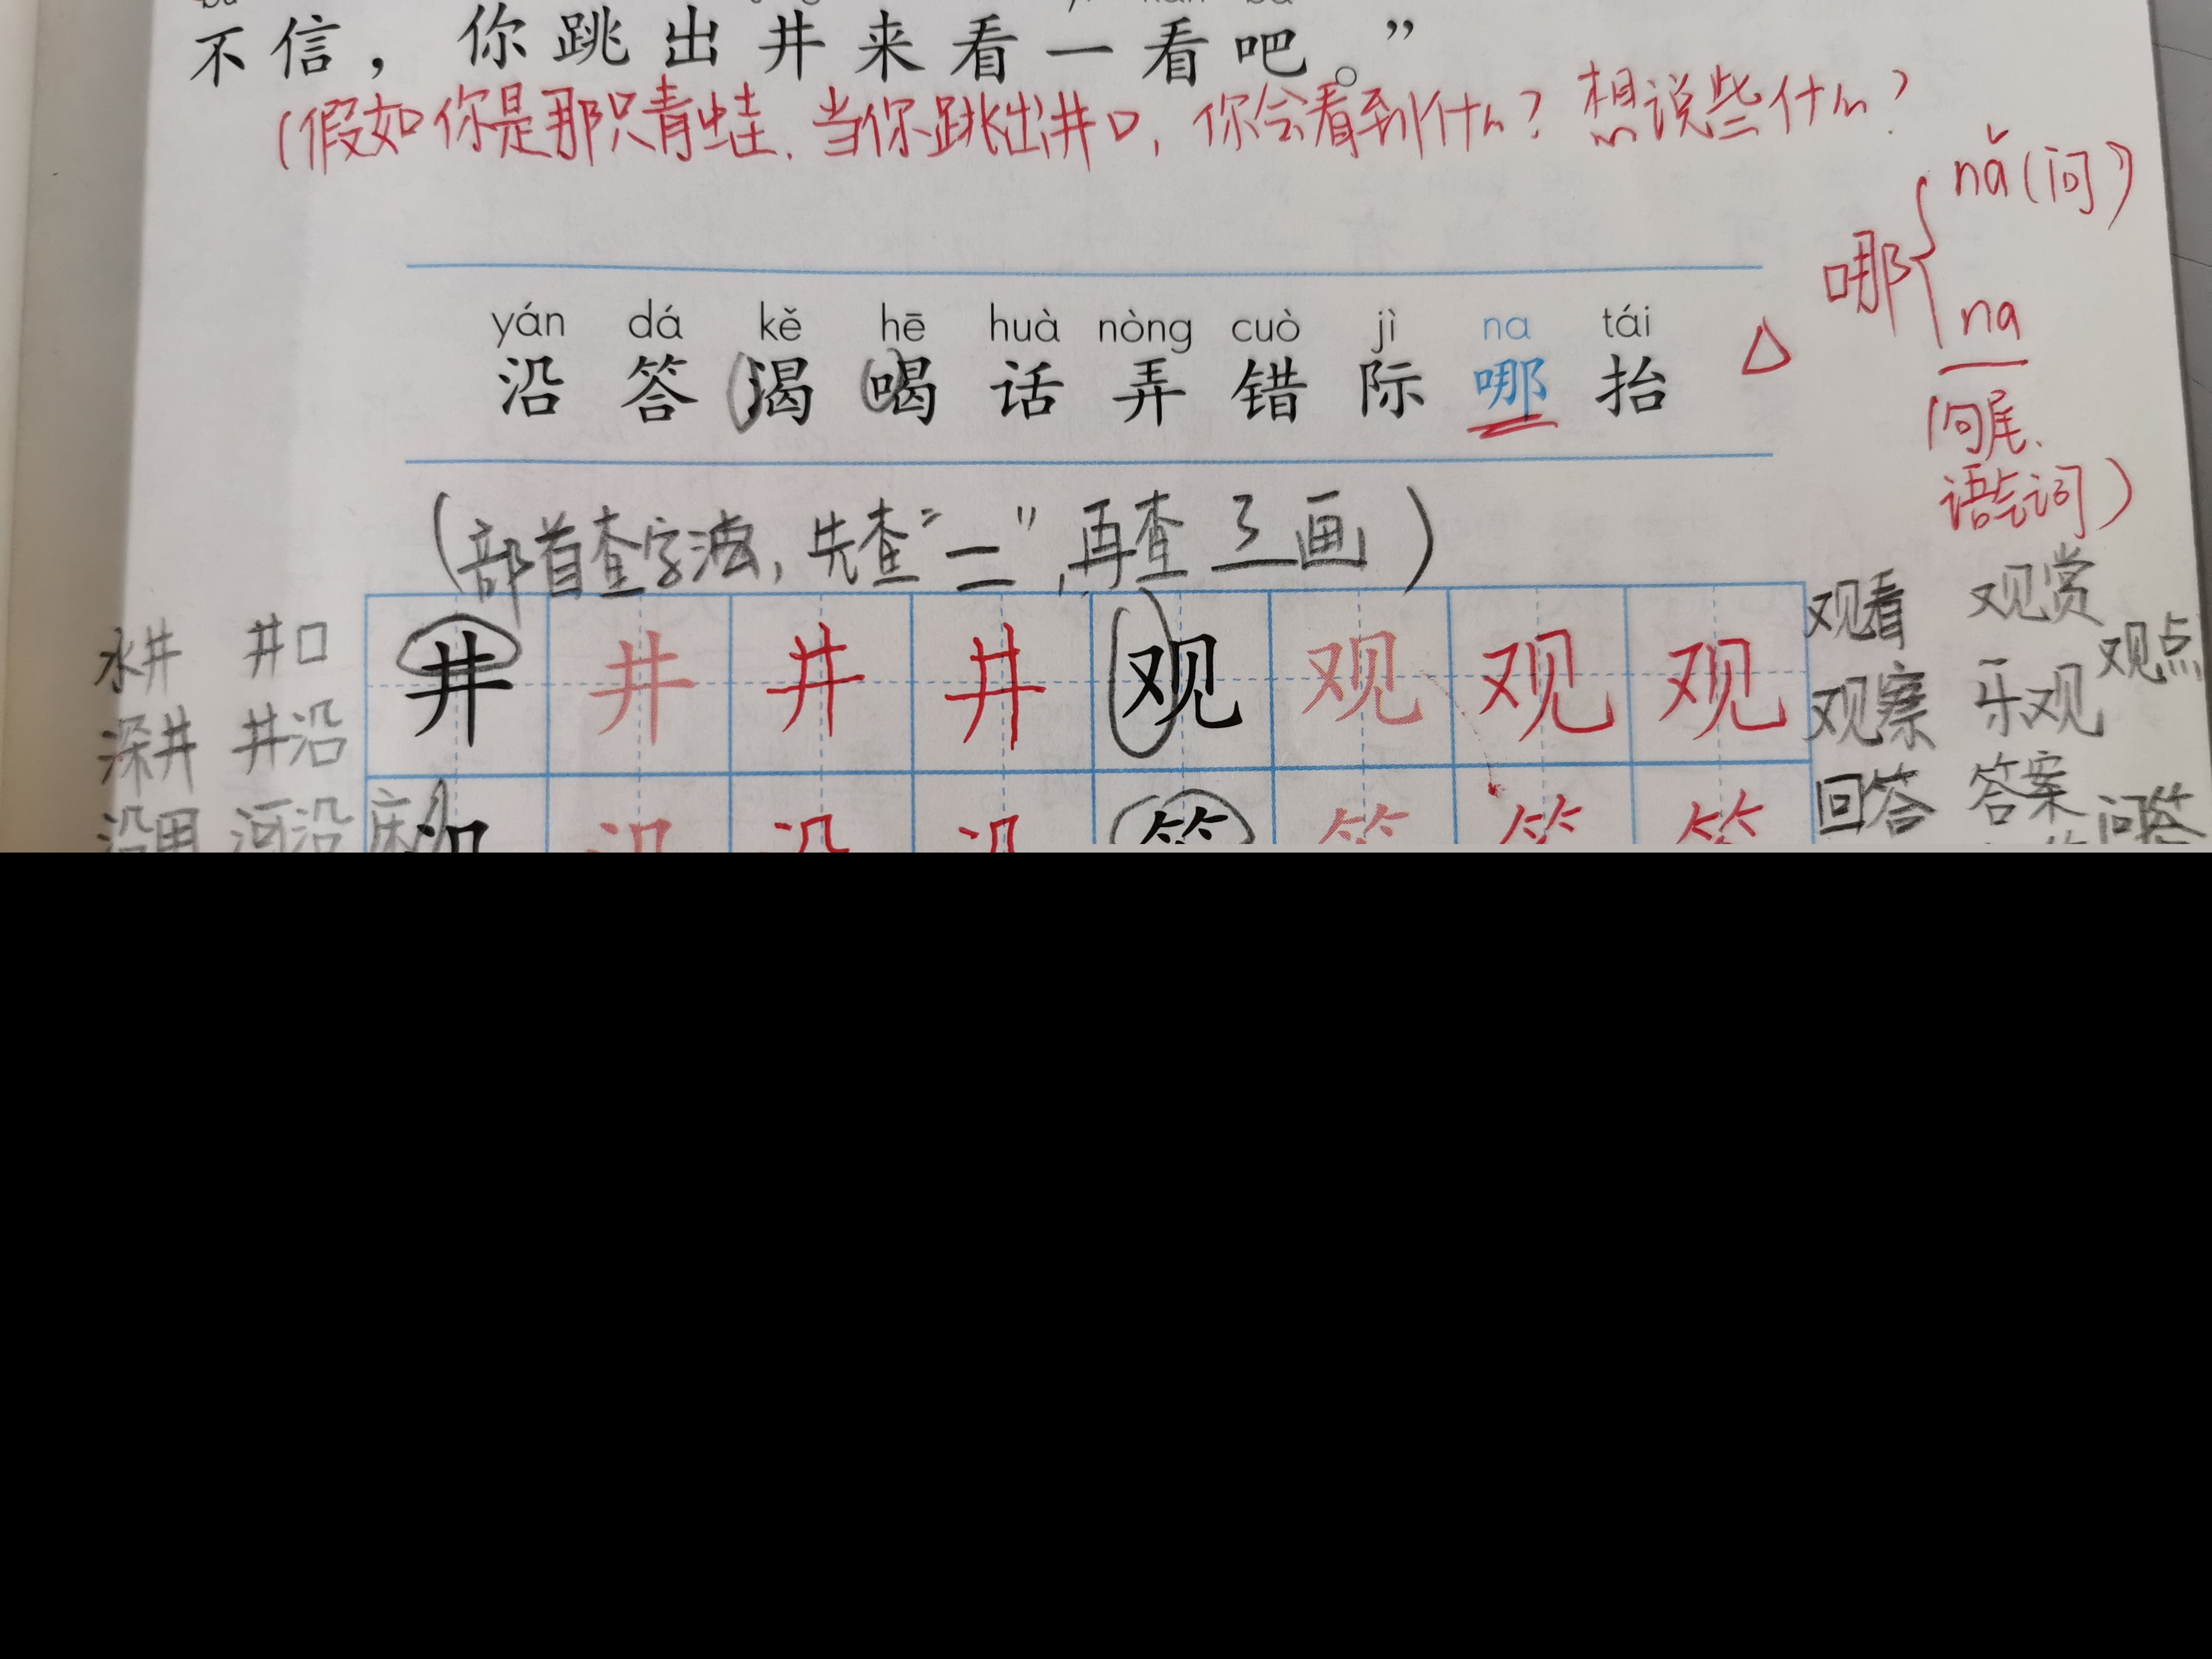 不信，你跳出井来看一看吧。”
（假如你是那只青蛙，当你跳出井口，你会看到什么？想说些什么？
哪 nǎ（问）
na
（句尾、
语气词）
yán dá kě hē huà nòng cuò jì na tái
沿 答 渴 喝 话 弄 错 际 哪 抬
（部首查字法，先查“一”，再查 3 画）
水井 井口 井 井 井 井 观 观 观 观 观看 观赏 观点
深井 井沿 观察 乐观
河沿 沿 沿 沿 答 答 答 答 回答 答案 问答